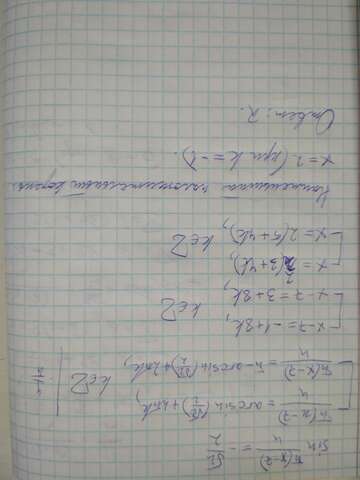 sin π(x-7)/4 = -√2/2
π(x-7)/4 = arcsin(-√2/2)+2πk,
π(x-7)/4 = π - arcsin(-√2/2)+2πk, k∈Z | 4/π
x-7 = -1+8k,
x-7 = 3+8k, k∈Z
x = 2(3+4k),
x = 2(5+4k), k∈Z
Наименьший положительный корень
x = 2 (при k = -1).
Ответ: 2.